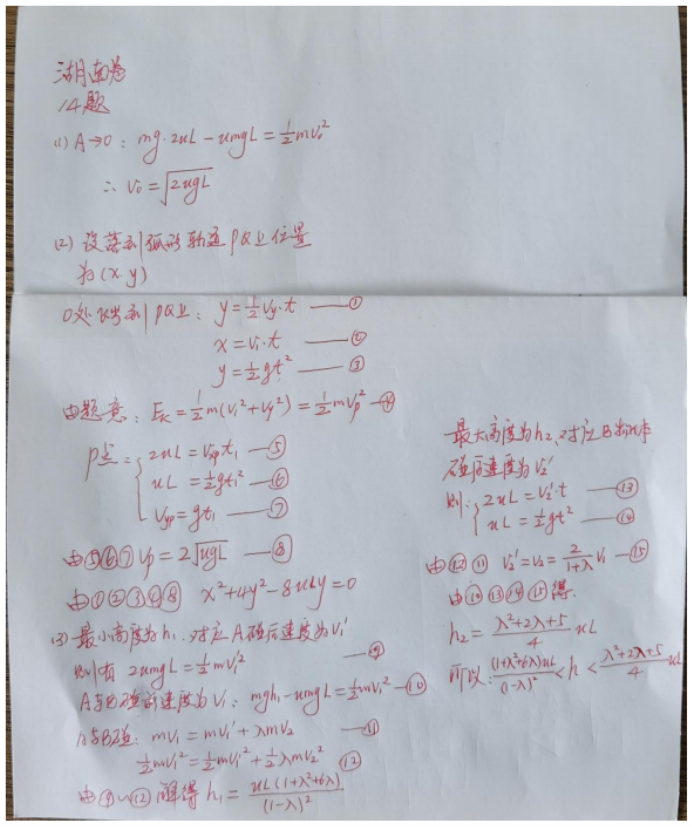 湖南卷
14题
(1) A→O: mg·2uL - umgL = 1/2 mv₀²
∴ v₀ = √(2ugL)
(2) 设落到弧形轨道PQ上位置
为(x.y)
O处 到PQ上: y = 1/2 vy·t —①
x = v₁·t —②
y = 1/2 gt² —③
由题意: Ek = 1/2 m(v₁²+vy²) = 1/2 mvp² —④
P点: { 2uL = vxp t₁ —⑤
uL = 1/2 gt₁² —⑥
vyp = gt₁ —⑦
由⑤⑥⑦ vp = 2√(ugL) —⑧
由①②③④⑧ x²+4y²-8uLy=0
(3) 最小高度为h₁. 对应A碰后速度为v₁'
则有 2umgL = 1/2 mv₁'² —⑨
A与B碰前速度为v₁: mgh₁ - umgL = 1/2 mv₁² —⑩
A与B碰: mv₁ = mv₁' + λmv₂ —⑪
1/2 mv₁² = 1/2 mv₁'² + 1/2 λmv₂² ⑫
由⑨~⑫解得 h₁ = uL(1+λ²+6λ)/(1-λ)²
最大高度为h₂, 对应B
碰后速度为v₂'
则: { 2uL = v₂'·t —⑬
uL = 1/2 gt² —⑭
由⑫⑪ v₂' = v₂ = 2/(1+λ) v₁ —⑮
由⑩⑬⑭⑮得.
h₂ = (λ²+2λ+5)/4 uL
可以: (1+λ²+6λ)uL/(1-λ)² < h < (λ²+2λ+5)/4 uL